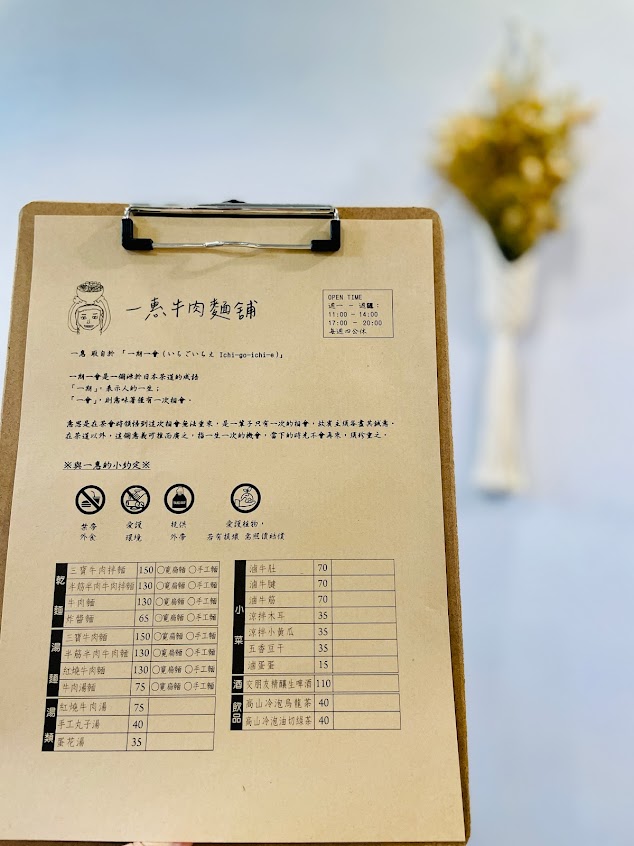 一惠牛肉麵舖
OPEN TIME
週一 - 週日：
11:00 - 14:00
17:00 - 20:00
每週四公休
一惠 取自於 「一期一會(いちごいちえ Ichi-go-ichi-e)」
一期一會是一個源於日本茶道的成語
「一期」,表示人的一生；
「一會」,則意味著僅有一次相會。
意思是在茶會時領悟到這次相會無法重來，是一輩子只有一次的相會，故賓主須各盡其誠意。
在茶道以外，這個意義可推而廣之，指一生一次的機會，當下的時光不會再來，須珍重之。
※與一惠的小約定※
禁帶
外食
愛護
環境
提供
外帶
愛護植物，
若有損壞 需照價賠償
乾麵
三寶牛肉拌麵 150 ○寬扁麵 ○手工麵
半筋半肉牛肉拌麵 130 ○寬扁麵 ○手工麵
牛肉麵 130 ○寬扁麵 ○手工麵
炸醬麵 65 ○寬扁麵 ○手工麵
湯麵
三寶牛肉麵 150 ○寬扁麵 ○手工麵
半筋半肉牛肉麵 130 ○寬扁麵 ○手工麵
紅燒牛肉麵 130 ○寬扁麵 ○手工麵
牛肉湯麵 75 ○寬扁麵 ○手工麵
湯類
紅燒牛肉湯 75
手工丸子湯 40
蛋花湯 35
小菜
滷牛肚 70
滷牛腱 70
滷牛筋 70
涼拌木耳 35
涼拌小黃瓜 35
五香豆干 35
滷蛋蛋 15
酒
交朋友精釀生啤酒 110
飲品
高山冷泡烏龍茶 40
高山冷泡油切綠茶 40